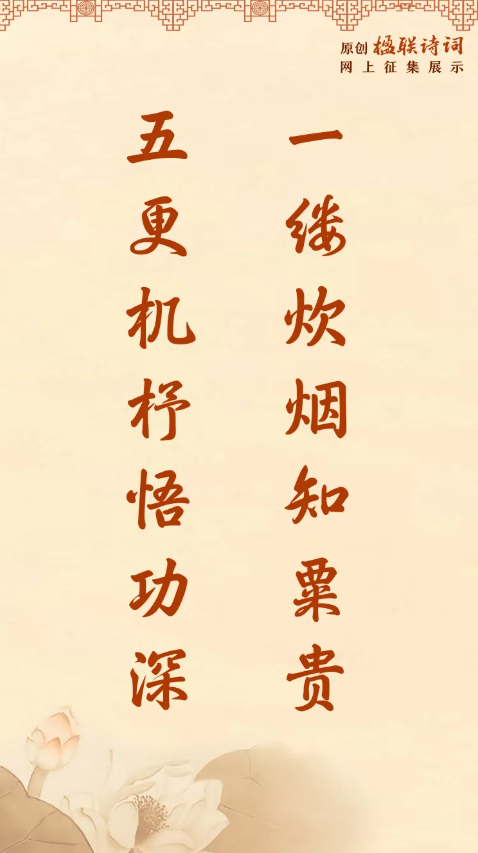 原创楹联诗词
网上征集展示
一缕炊烟知粟贵
五更机杼悟功深